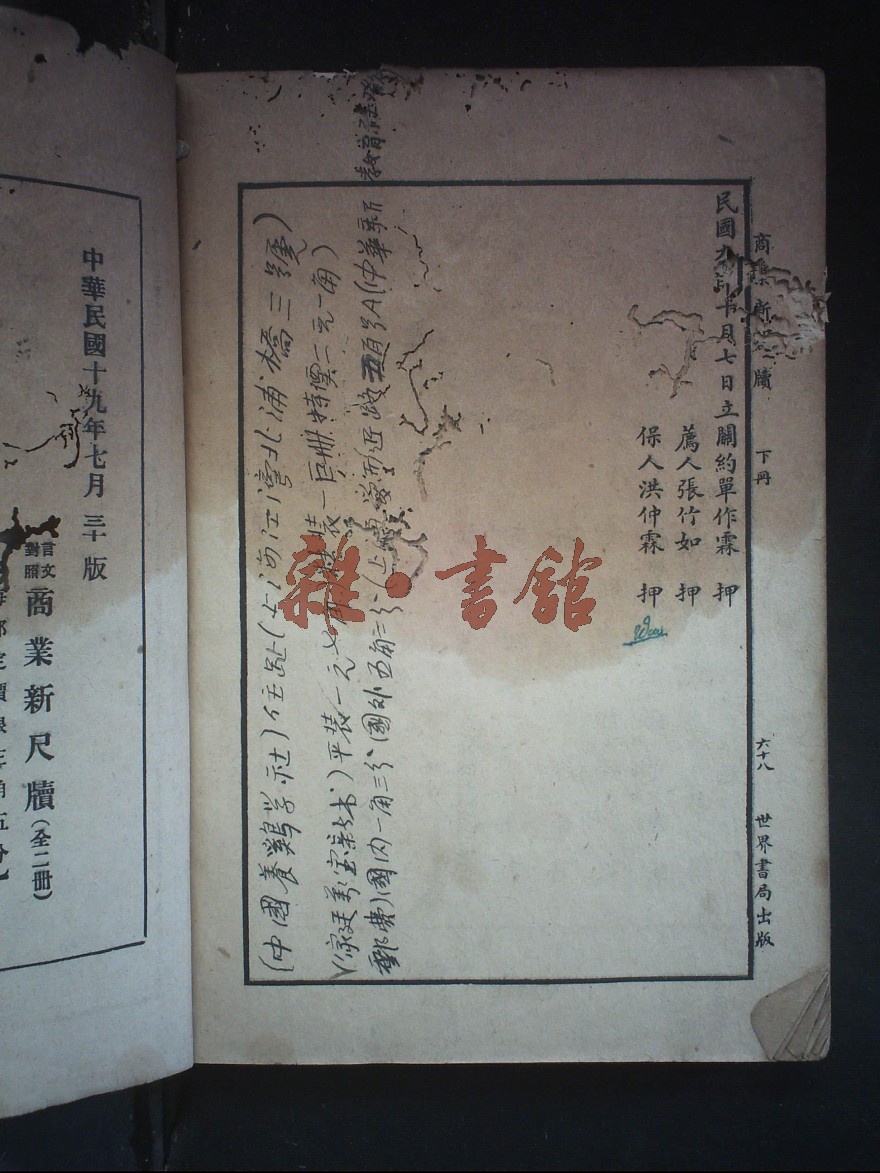 商業新尺牘 下冊 六十八 世界書局出版
民國九年十月七日立關約單作霖 押
薦人張竹如 押
保人洪仲霖 押
(中國養鷄学社)住址(上海江灣北浦橋三號)
(家廷萬宝新书)平裝一元七角 精裝一巨册特價二元一角)
郵費)國内一角三分(國外五角二分(上海
中華民國十九年七月三十版
言文對照 商業新尺牘(全二冊)
雜·書館